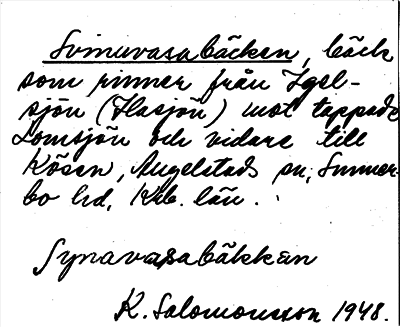 Svinuvasabäcken, bäck
som rinner från Igel-
sjön (Ilasjön) mot tappade
Lomsjön och vidare till
Kösen, Angelstads sn, Sunner-
bo hd, Krb. län.
Synavasabäkkan
K. Salomonsson 1948.